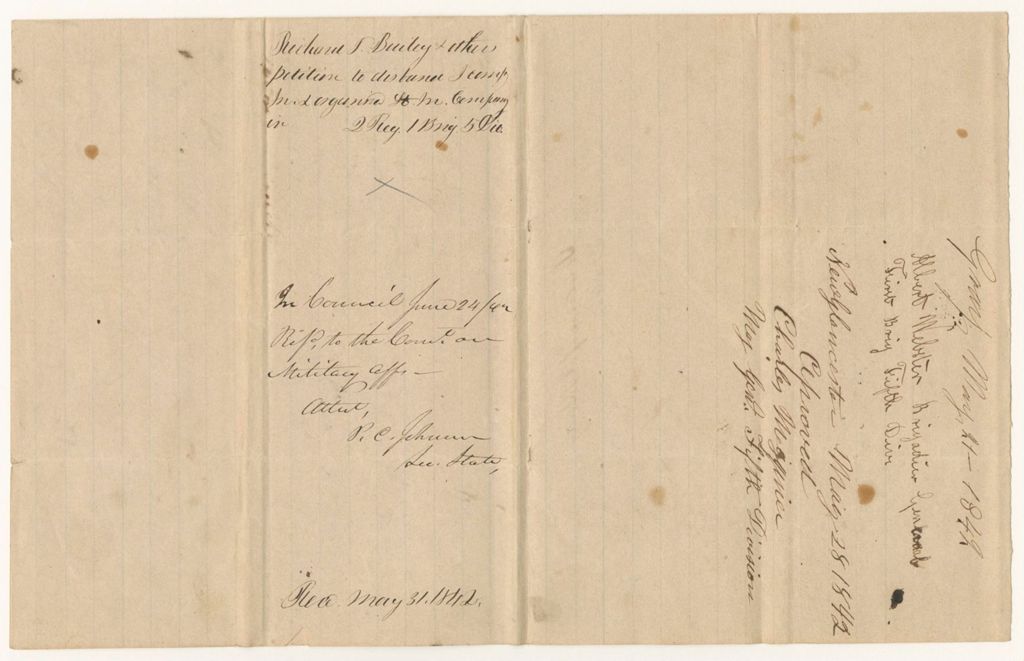 Richard T. Bailey & others
petition to disband I comp.
In. & organize St In. Company
in 2 Reg. 1 Brig. 5 Div.
In Council June 24/42
Ref. to the Com. on
Military Aff. —
Attest,
P. C. Johnson
Sec. State,
Rec. May 31. 1842.
Gray May, 21 — 1842
Albert Webster Brigadier General
First Brig Fifth Divi
New Gloucester May 28 1842
Approved
Charles Megquier
Maj. Gen. Fifth Division